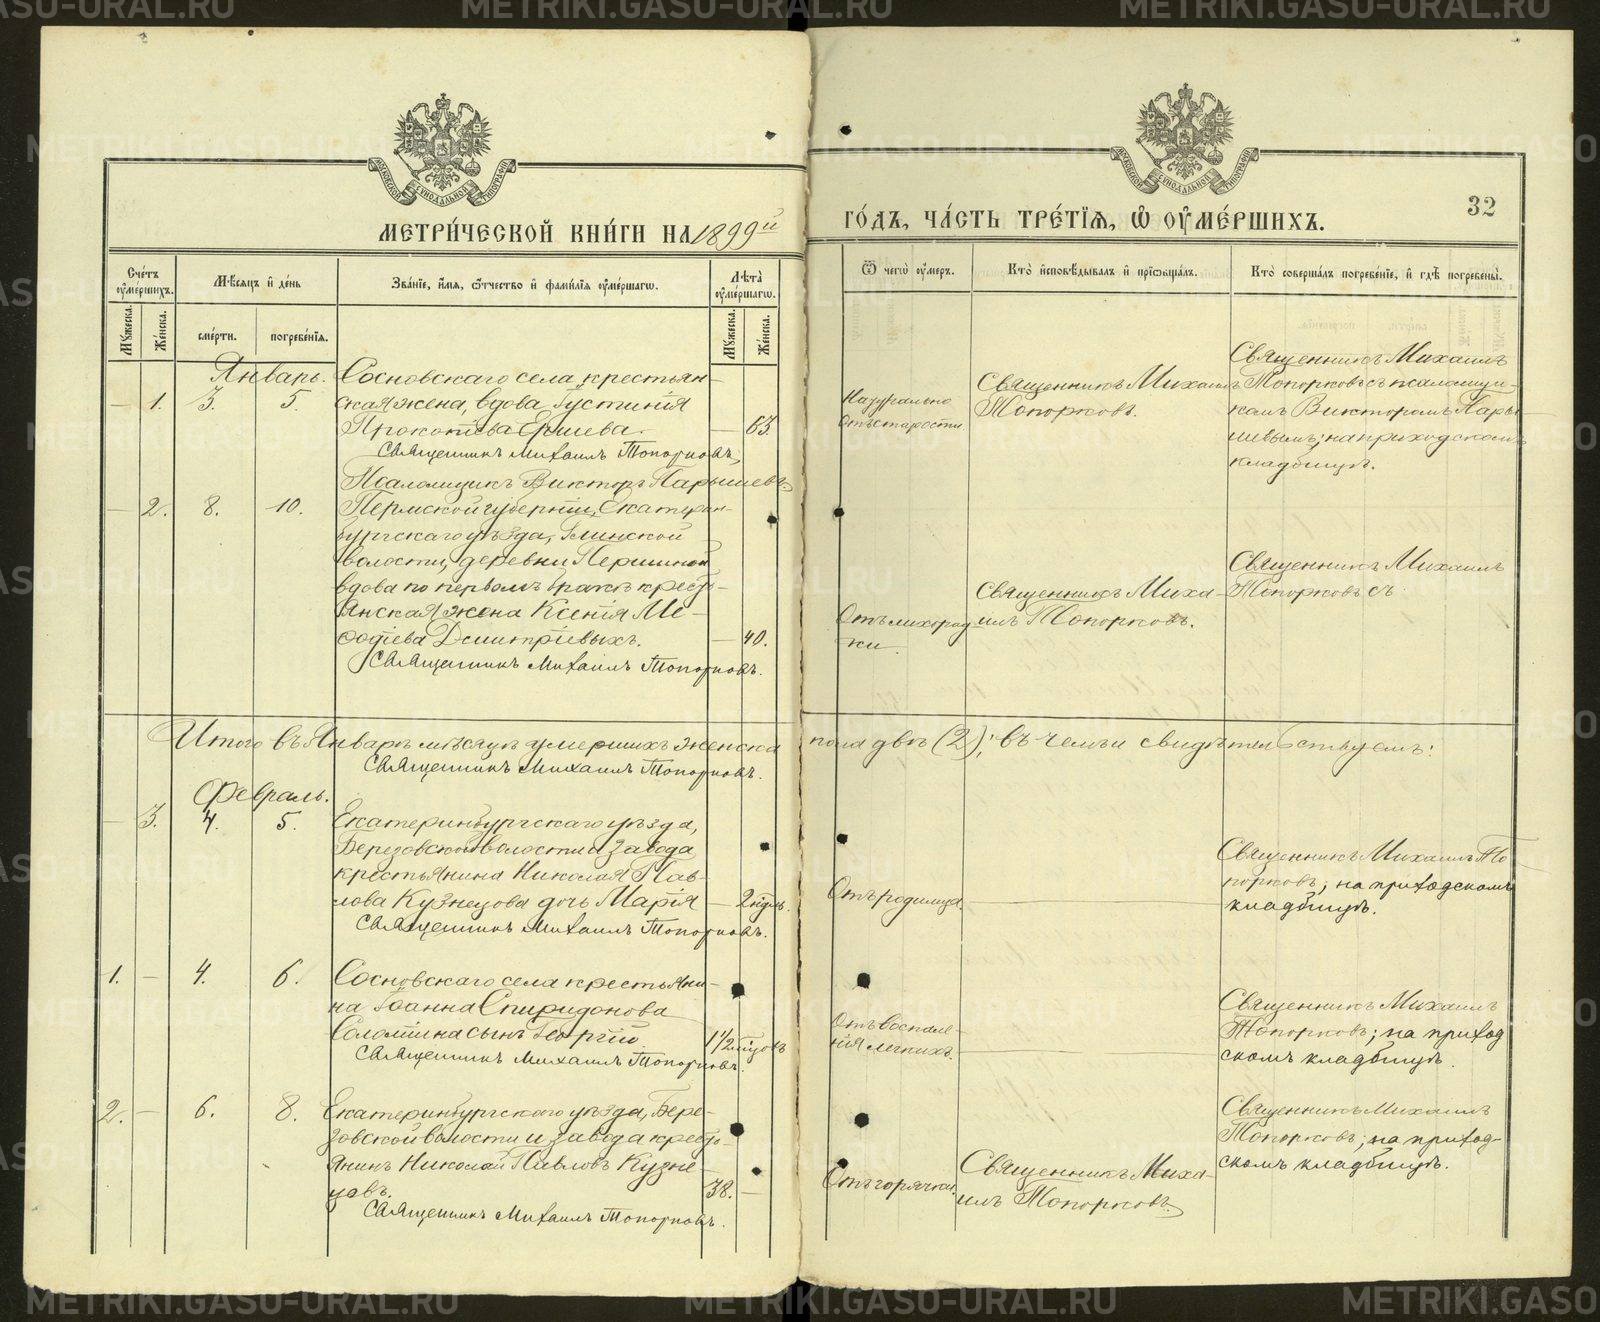 МЕТРИ́ЧЕСКОЙ КНИ́ГИ НА 1899й
ГО́ДЪ, ЧА́СТЬ ТРЕ́ТІѦ, Ѽ ОУМЕ́РШИХЪ.
32
Сче́тъ оуме́ршихъ.
Мѣ́сяцъ и҆ де́нь
Зва́нїе, и҆́мя, ѻ҆́тчество и҆ фамі́лїя оуме́ршагѡ.
Лѣ́та оуме́ршагѡ.
Мꙋжеска.
Же́нска.
сме́рти.
погребе́нїѧ.
Мꙋжеска.
Же́нска.
Ѿ чегѡ̀ оу҆́меръ.
Кто̀ и҆сповѣ́дывалъ и҆ прїѡбща́лъ.
Кто̀ соверша́лъ погребе́нїе, и҆ гдѣ̀ погребены̀.
Январь.
— 1. 3. 5.
Сосновскаго села крестьян-
ская жена, вдова Іустинія
Прокопіева Ершева. — 63.
Священникъ Михаилъ Топорковъ,
Псаломщикъ Викторъ Парышевъ
Натурально
отъ старости
Священникъ Михаилъ
Топорковъ.
Священникъ Михаилъ
Топорковъ съ псаломщи-
комъ Викторомъ Пары-
шевымъ; на приходскомъ
кладбищѣ.
— 2. 8. 10.
Пермской губерніи, Екатерин-
бургскаго уѣзда,
волости, деревни
вдова по первомъ бракѣ кресть-
янская жена Ксенія Ме-
фодіева Дмитріевыхъ. — 40.
Священникъ Михаилъ Топорковъ.
Отъ лихорад-
ки.
Священникъ Миха-
илъ Топорковъ.
Священникъ Михаилъ
Топорковъ съ
Итого въ Январѣ мѣсяцѣ умершихъ женска
пола двѣ (2); въ чемъ и свидѣтельствуемъ:
Священникъ Михаилъ Топорковъ.
Февраль.
— 3. 4. 5.
Екатеринбургскаго уѣзда,
Березовской волости и завода
крестьянина Николая Пав-
лова Кузнецова дочь Марія — 2 нед.
Священникъ Михаилъ Топорковъ.
Отъ родимца.
Священникъ Михаилъ То-
порковъ; на приходскомъ
кладбищѣ.
1. — 4. 6.
Сосновскаго села крестьяни-
на Іоанна Спиридонова
Соломина сынъ Георгій 1 1/2
Священникъ Михаилъ Топорковъ.
Отъ воспале-
нія легкихъ.
Священникъ Михаилъ
Топорковъ; на приход-
скомъ кладбищѣ.
2. — 6. 8.
Екатеринбургскаго уѣзда, Бере-
зовской волости и завода кресть-
янинъ Николай Павловъ Кузне-
цовъ. 38. —
Священникъ Михаилъ Топорковъ.
Отъ горячки.
Священникъ Миха-
илъ Топорковъ.
Священникъ Михаилъ
Топорковъ; на приход-
скомъ кладбищѣ.
METRIKI.GASO-URAL.RU